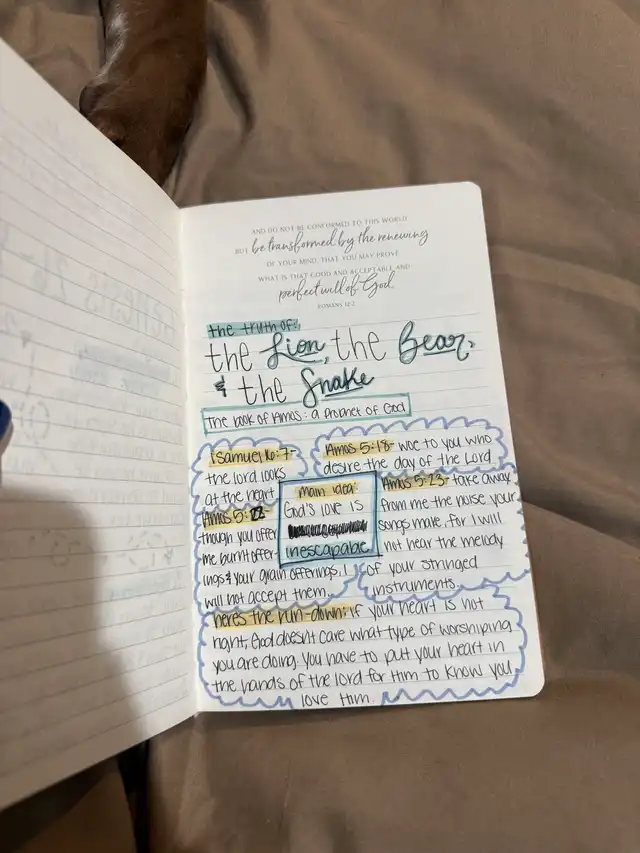 AND DO NOT BE CONFORMED TO THIS WORLD
BUT be transformed by the renewing
OF YOUR MIND, THAT YOU MAY PROVE
WHAT IS THAT GOOD AND ACCEPTABLE AND
perfect will of God.
ROMANS 12:2
the truth of:
the Lion, the Bear,
& the Snake
The book of Amos: a prophet of God
1 Samuel 16:7-
the lord looks
at the heart
Amos 5:18- woe to you who
desire the day of the Lord
Amos 5:22
though you offer
me burnt offer-
ings & your grain offerings, I
will not accept them..
main idea:
God's love is
inescapable
Amos 5:23- take away
from me the noise your
songs make, for I will
not hear the melody
of your stringed
instruments..
here's the run-down: If your heart is not
right, God doesn't care what type of worshiping
you are doing. You have to put your heart in
the hands of the lord for Him to know you
love Him.